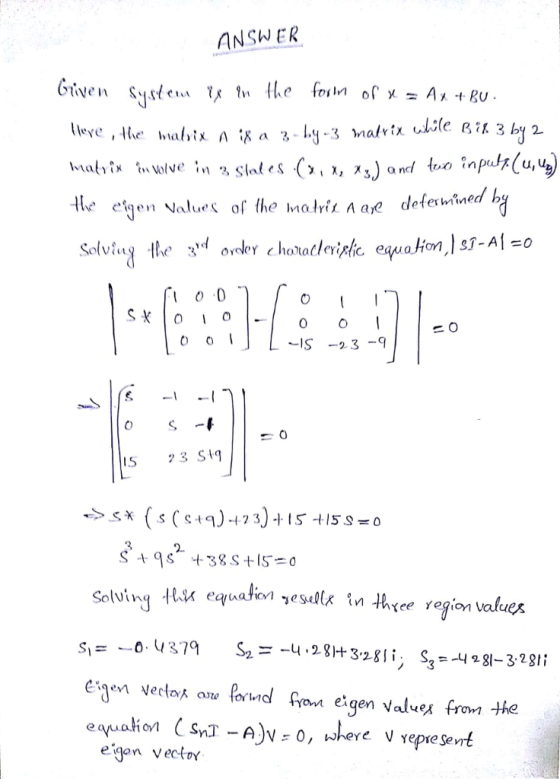 ANSWER
Given system is in the form of x = Ax + BU.
Here, the matrix A is a 3-by-3 matrix while B is 3 by 2
matrix involve in 3 states (x₁ x₂ x₃) and two inputs (u₁ u₂)
the eigen values of the matrix A are determined by
Solving the 3rd order characteristic equation, |SI-A| = 0
| S* [1 0 0; 0 1 0; 0 0 1] - [0 1 1; 0 0 1; -15 -23 -9] | = 0
⇒ | [s -1 -1; 0 s -1; 15 23 s+9] | = 0
⇒ s* (s(s+9)+23)+15+15s=0
s³ + 9s² + 38s + 15 = 0
Solving this equation results in three region values
S₁ = -0.4379 S₂ = -4.281+3.281i; S₃ = -4 281-3.281i
Eigen vectors are formd from eigen values from the
equation (SnI - A)V = 0, where V represent
eigen vector.